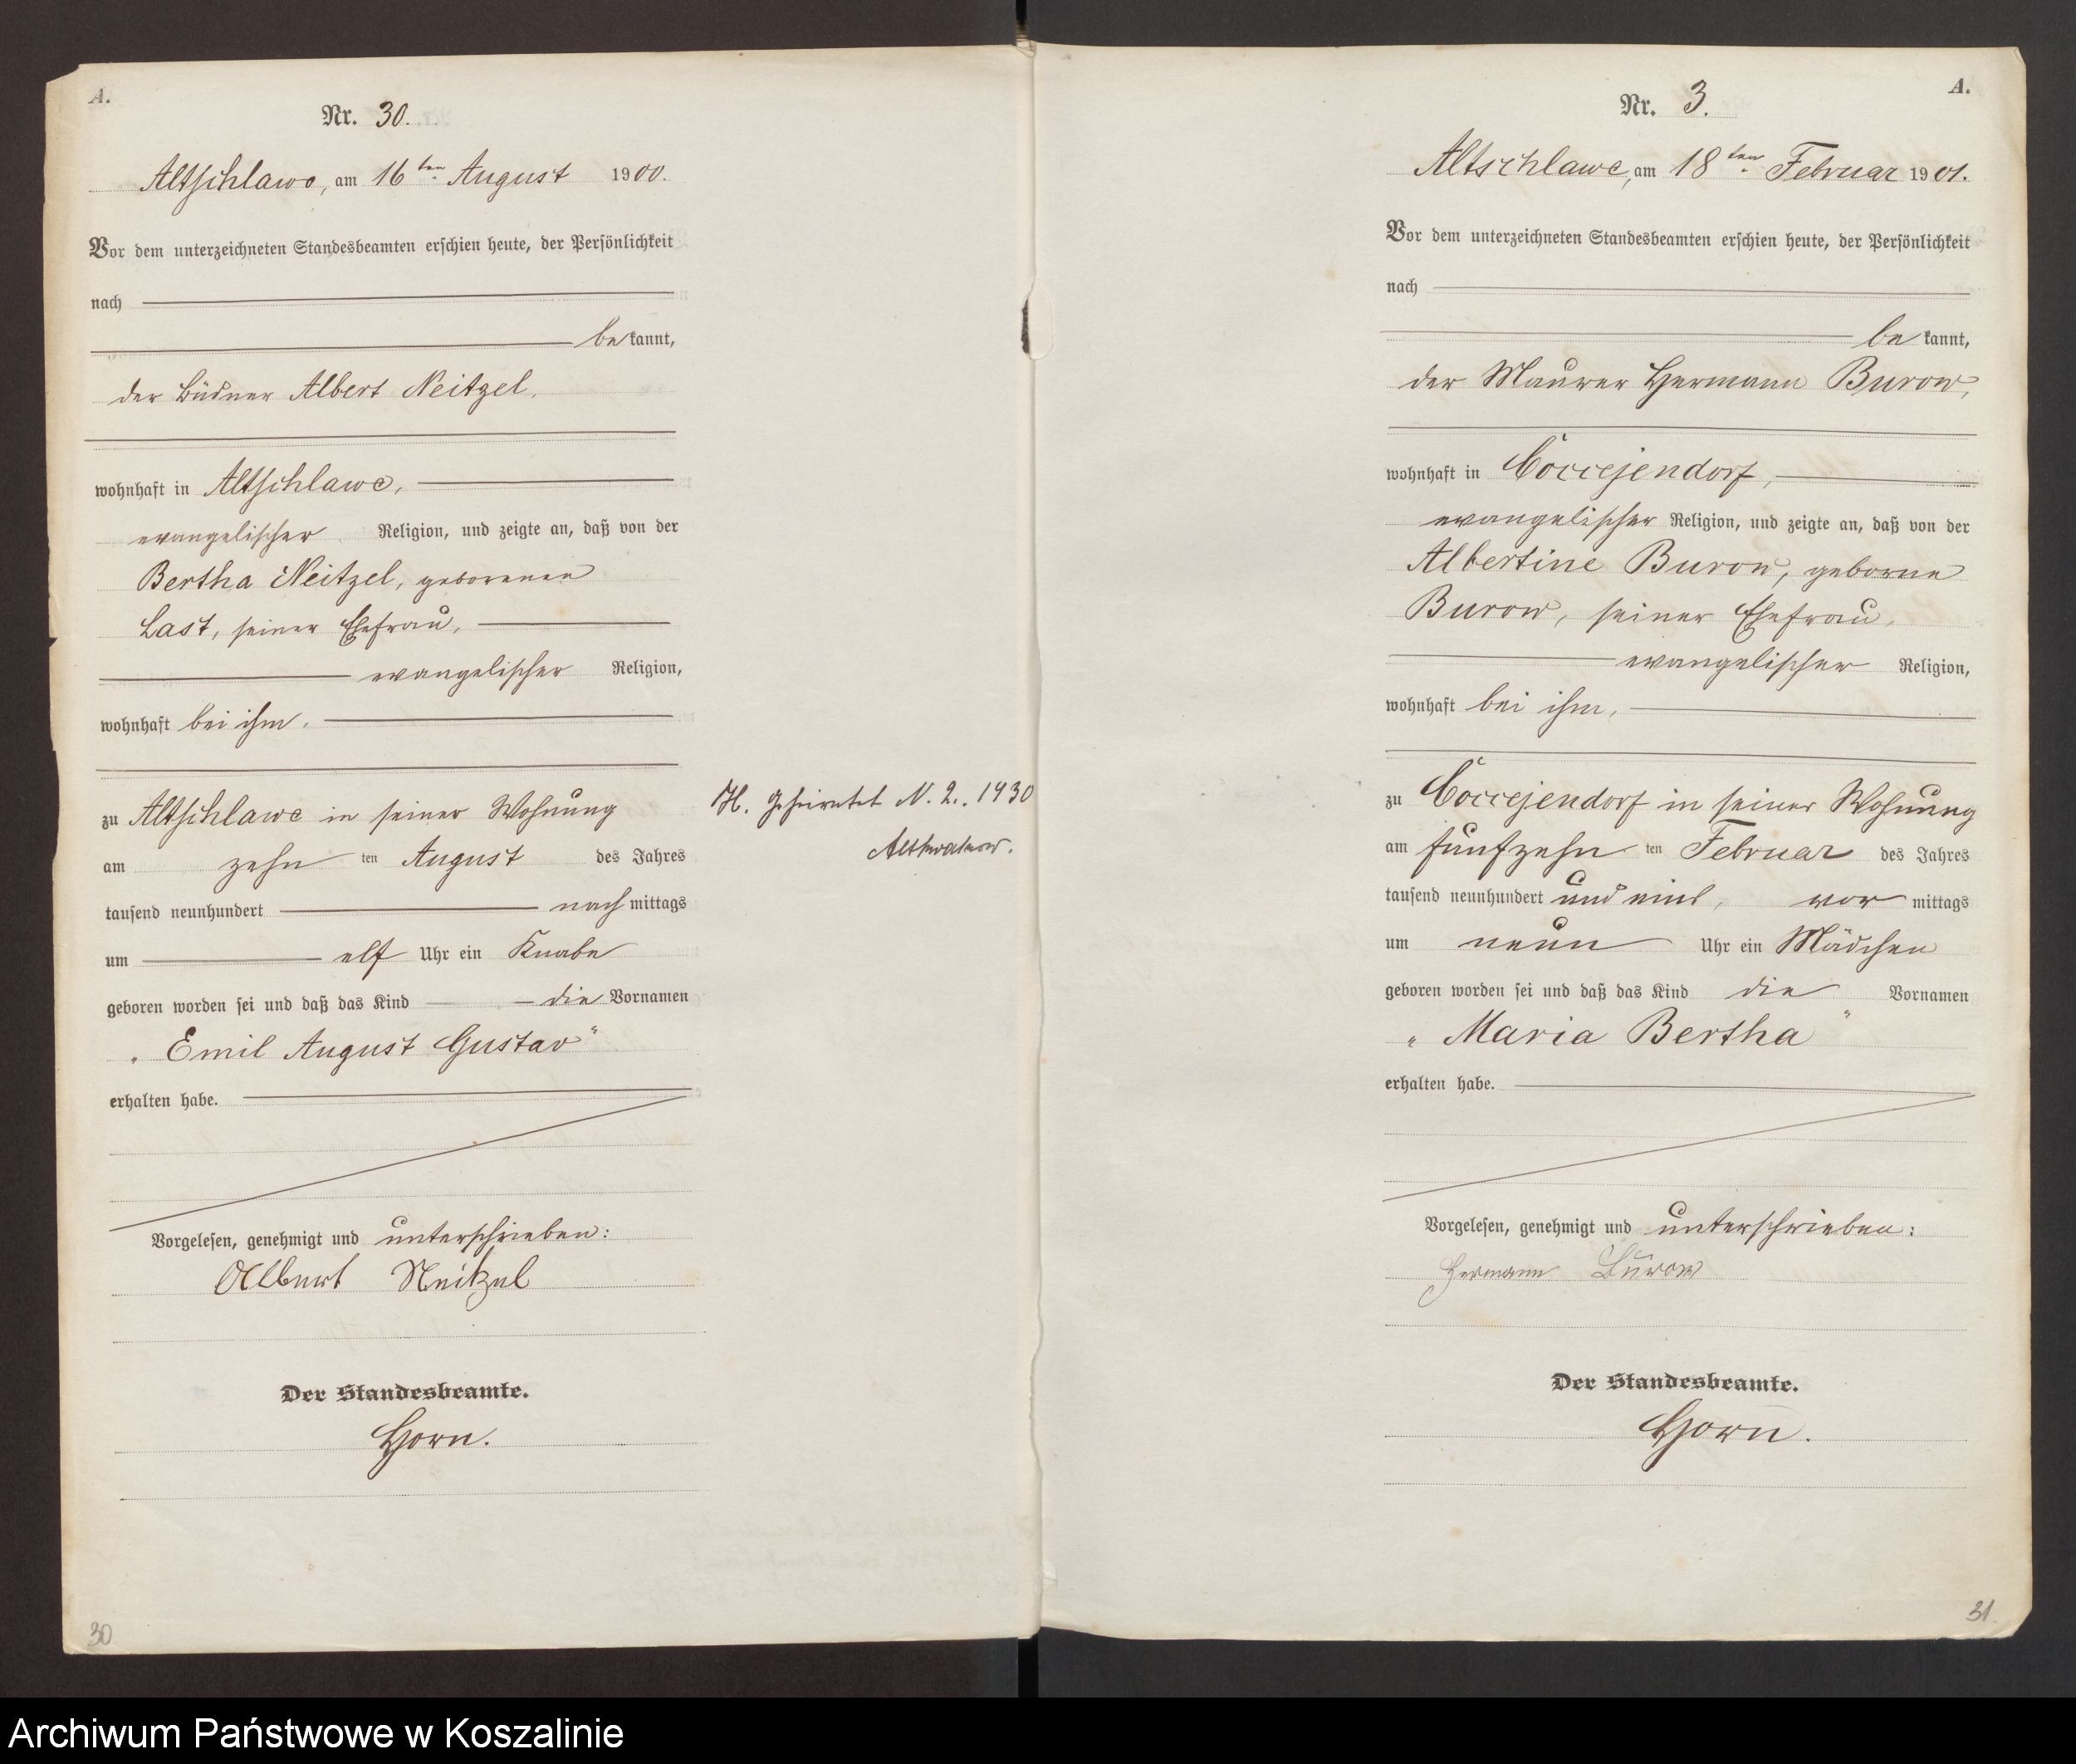 A.
Nr. 30.
Altschlawe, am 16ten August 1900.
Vor dem unterzeichneten Standesbeamten erschien heute, der Persönlichkeit
nach
bekannt,
der Büdner Albert Neitzel,
wohnhaft in Altschlawe,
evangelischer Religion, und zeigte an, daß von der
Bertha Neitzel, geborenen
Last, seiner Ehefrau,
evangelischer Religion,
wohnhaft bei ihm,
zu Altschlawe in seiner Wohnung
am zehn ten August des Jahres
tausend neunhundert nach mittags
um elf Uhr ein Knabe
geboren worden sei und daß das Kind die Vornamen
„Emil August Gustav“
erhalten habe.
Vorgelesen, genehmigt und unterschrieben:
Albert Neitzel
Der Standesbeamte.
Horn.
30
H. Geheiratet N. 2. 1930
A.
Nr. 3.
Altschlawe, am 18ten Februar 1901.
Vor dem unterzeichneten Standesbeamten erschien heute, der Persönlichkeit
nach
bekannt,
der Maurer Hermann Burow,
wohnhaft in Coccejendorf,
evangelischer Religion, und zeigte an, daß von der
Albertine Burow, geborne
Burow, seiner Ehefrau,
evangelischer Religion,
wohnhaft bei ihm,
zu Coccejendorf in seiner Wohnung
am fünfzehn ten Februar des Jahres
tausend neunhundert und eins, vor mittags
um neun Uhr ein Mädchen
geboren worden sei und daß das Kind die Vornamen
„Maria Bertha“
erhalten habe.
Vorgelesen, genehmigt und unterschrieben:
Hermann Burow
Der Standesbeamte.
Horn.
31
Archiwum Państwowe w Koszalinie